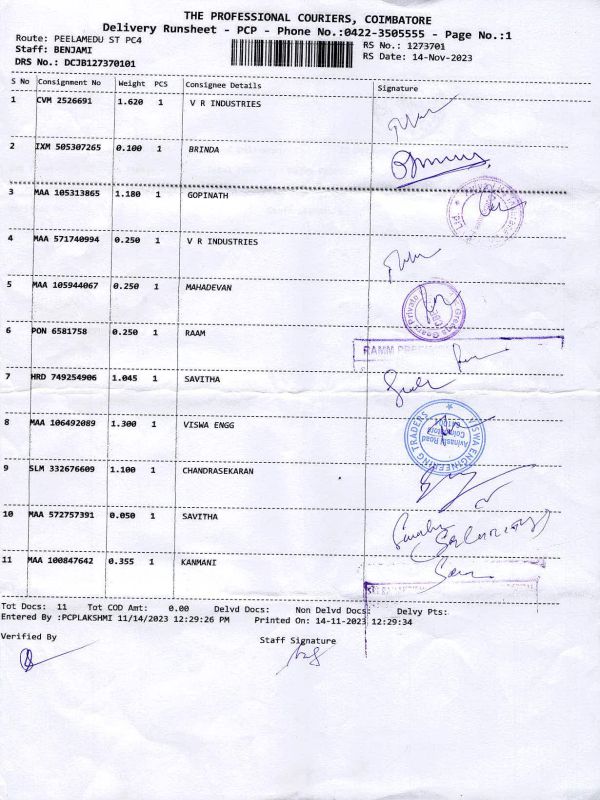 THE PROFESSIONAL COURIERS, COIMBATORE
Delivery Runsheet - PCP - Phone No.:0422-3505555 - Page No.:1
Route: PEELAMEDU ST PC4 RS No.: 1273701
Staff: BENJAMI RS Date: 14-Nov-2023
DRS No.: DCJB127370101
S No Consignment No Weight PCS Consignee Details Signature
1 CVM 2526691 1.620 1 V R INDUSTRIES
2 IXM 505307265 0.100 1 BRINDA
3 MAA 105313865 1.180 1 GOPINATH
4 MAA 571740994 0.250 1 V R INDUSTRIES
5 MAA 105944067 0.250 1 MAHADEVAN
6 PON 6581758 0.250 1 RAAM
RAMM
7 HRD 749254906 1.045 1 SAVITHA
8 MAA 106492089 1.300 1 VISWA ENGG
VISWA ENGINEERING TRADERS
Avinashi Road
Coimbatore
9 SLM 332676609 1.100 1 CHANDRASEKARAN
10 MAA 572757391 0.050 1 SAVITHA
11 MAA 100847642 0.355 1 KANMANI
Tot Docs: 11 Tot COD Amt: 0.00 Delvd Docs: Non Delvd Docs: Delvy Pts:
Entered By :PCPLAKSHMI 11/14/2023 12:29:26 PM Printed On: 14-11-2023 12:29:34
Verified By Staff Signature